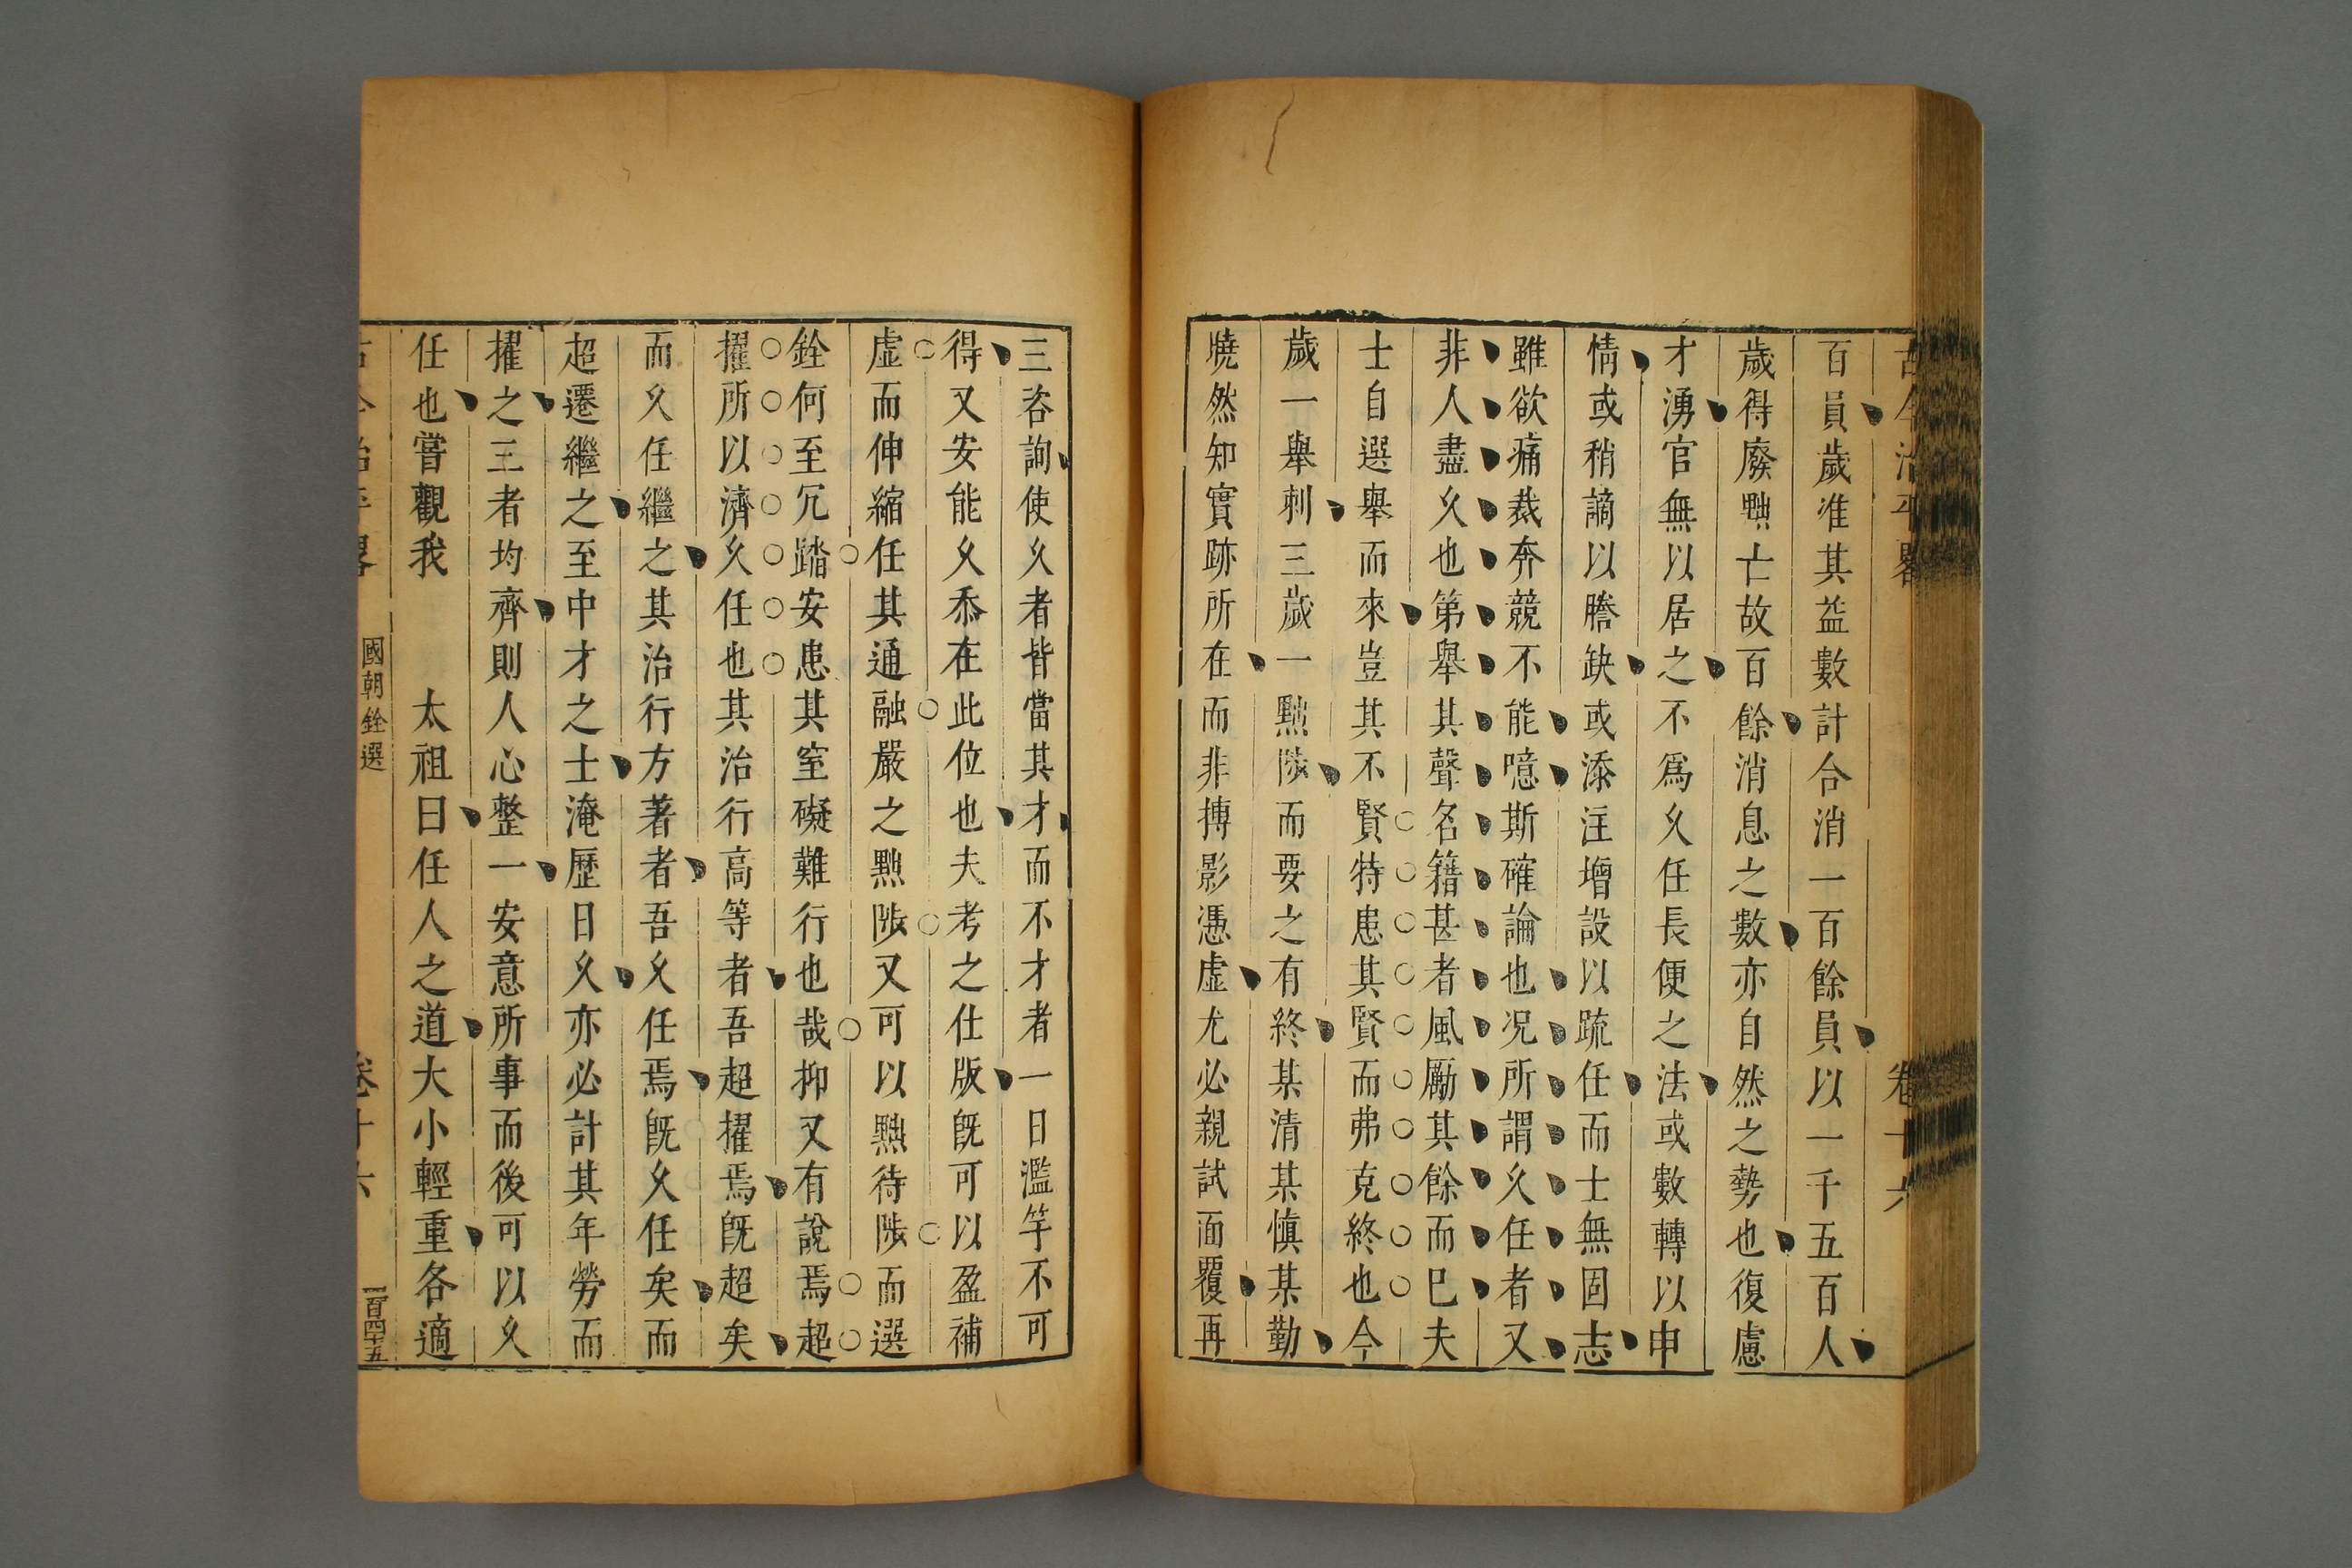 古今治平畧
卷十六
百員歲准其益數計合消一百餘員以一千五百人
歲得廢黜亡故百餘消息之數亦自然之勢也復慮
才湧官無以居之不爲久任長便之法或數轉以申
情或稍謫以謄缺或添注增設以䟽任而士無固志
雖欲痛裁奔競不能噫斯確論也况所謂久任者又
非人盡久也第舉其聲名籍甚者風厲其餘而巳夫
士自選舉而來豈其不賢特患其賢而弗克終也今
歲一舉刺三歲一黜陟而要之有終某清某慎某勤
曉然知實跡所在而非搏影憑虛尤必親試面覆再
三咨詢使久者皆當其才而不才者一日濫竽不可
得又安能久忝在此位也夫考之仕版旣可以盈補
虛而伸縮任其通融嚴之黜陟又可以黜待陟而選
銓何至冗踏安患其窒礙難行也哉抑又有說焉超
擢所以濟久任也其治行高等者吾超擢焉旣超矣
而久任繼之其治行方著者吾久任焉旣久任矣而
超遷繼之至中才之士淹歷日久亦必計其年勞而
擢之三者均齊則人心整一安意所事而後可以久
任也嘗觀我 太祖曰任人之道大小輕重各適
國朝銓選
卷十六
一百四十五